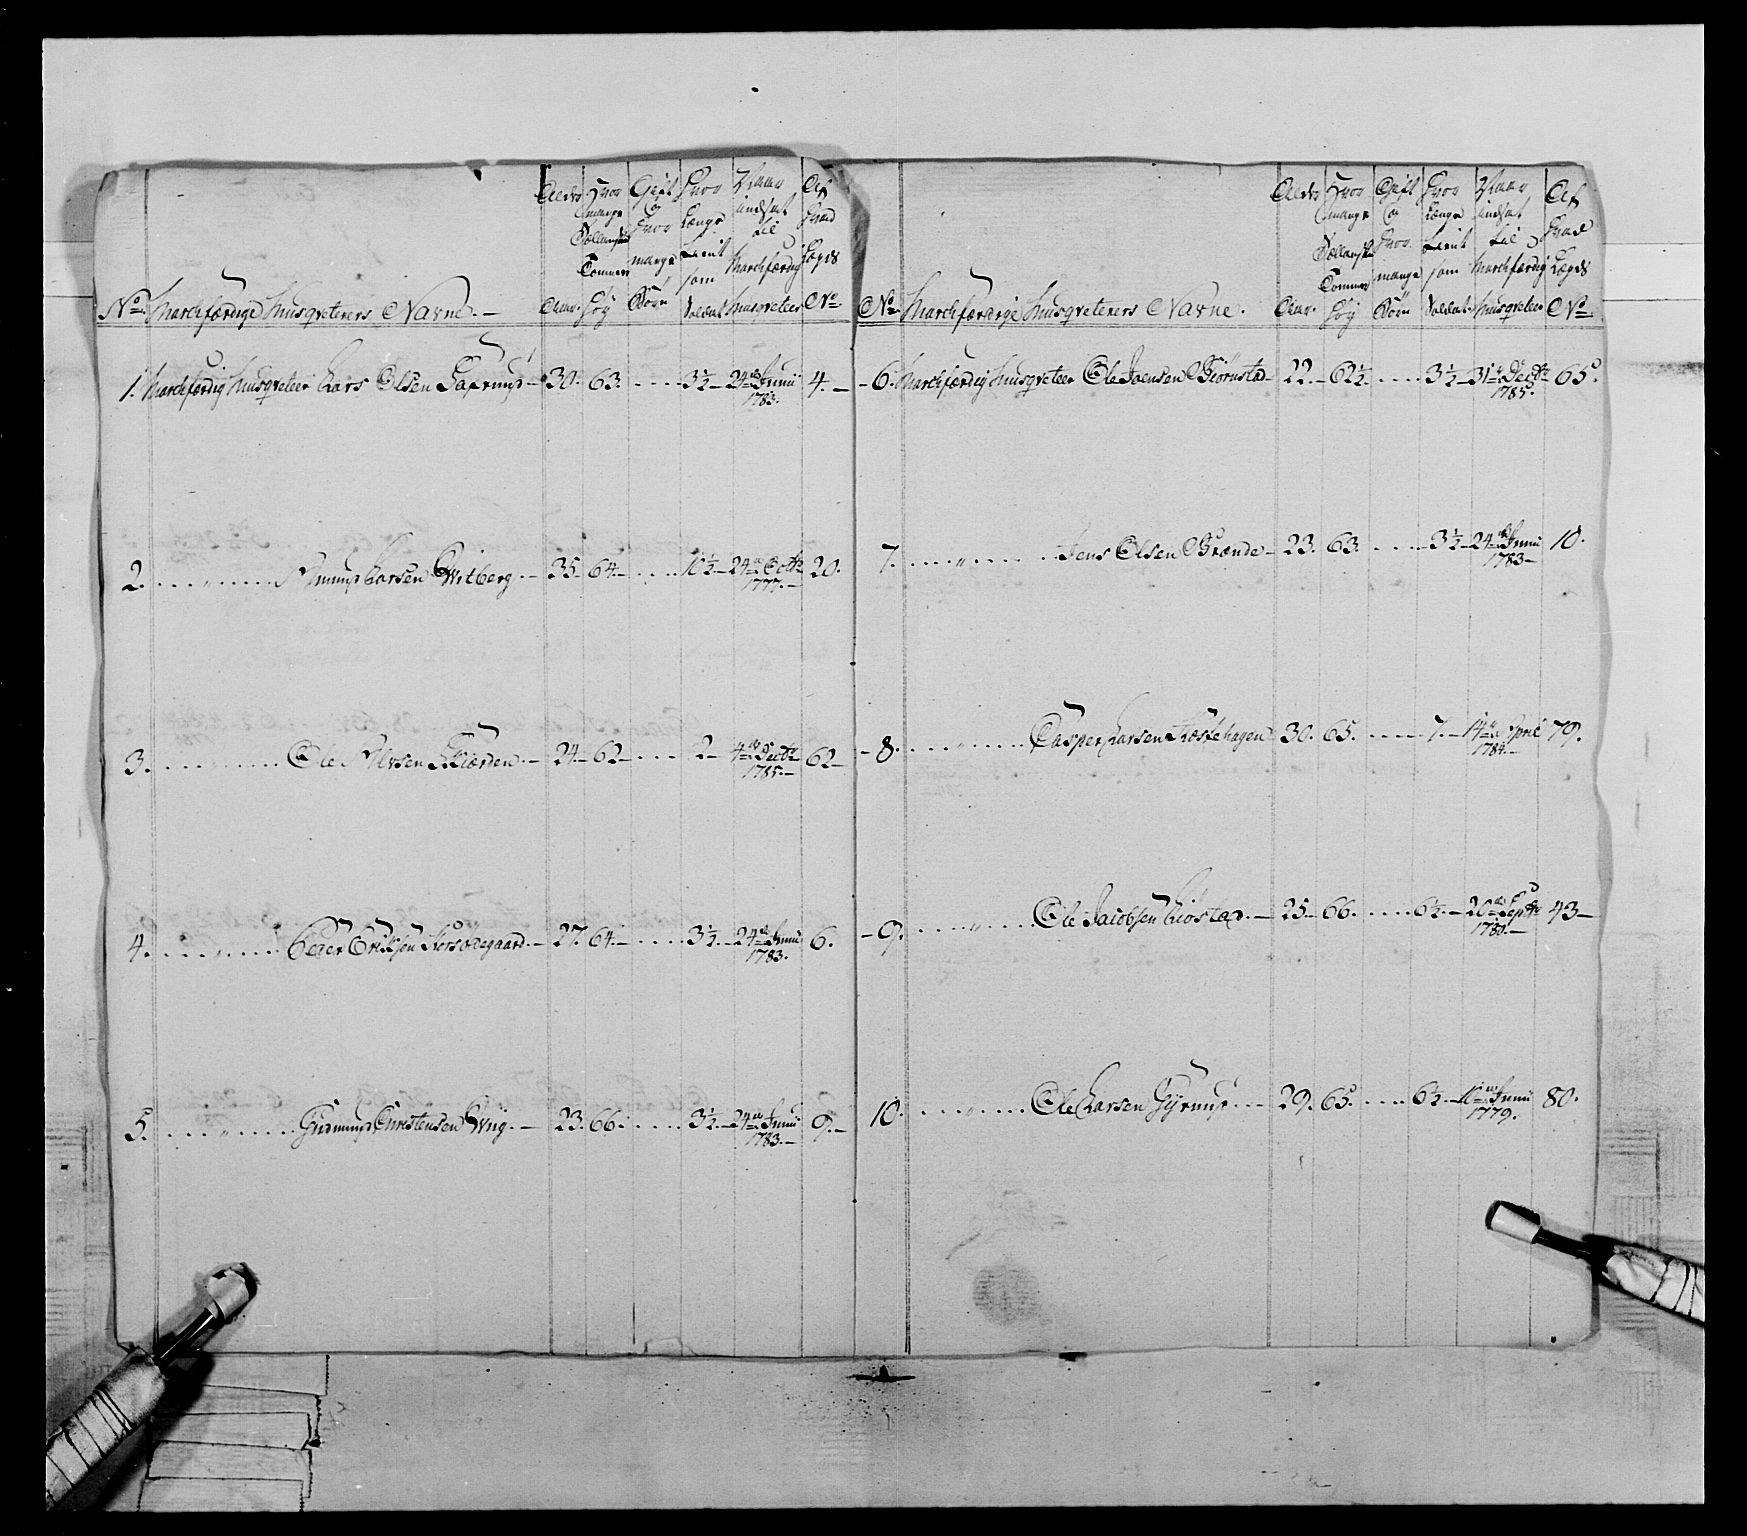 No. Marchfærdige Musqveterers Navne. Alder Aar. Hvor mange Sællandske Tommer høy Gift og hvor mange Börn Hvor Længe tient som Soldat Naar indsat til Marchfærdig Musqveteer Af hvad Lægds No.
1. Marchfærdig Musqveteer Lars Olsen 30. 63. 3½ 24de Junii 1783. 4.
2. Amund Larsen Hvitberg 35 64 10½ 24de Octbr 1777. 20.
3. Ole Skiærden 24 62 2 4de 1785. 62
4. Peder Eriksen 27. 64 3½ 24de Junii 1783. 6.
5. Gudmund Christensen Wiig 23. 66 3½ 24de Junii 1783. 9.
No. Marchfærdige Musqveterers Navne. Alder Aar. Hvor mange Sællandske Tommer høy Gift og hvor mange Börn Hvor Længe tient som Soldat Naar indsat til Marchfærdig Musqveteer Af hvad Lægds No.
6. Marchfærdig Musqveteer Ole Joensen Biörnstad 22 62½ 3½ 31te Decbr 1785. 65.
7. Jens Olsen Brænde 23. 63. 3½ 24de Junii 1783 10.
8. Casper Larsen 30. 65. 7. 14de April 1784. 79.
9. Ole Jacobsen Kiöstad 25 66. 6½ 20de Septbr 1780. 43
10. Ole Larsen 29. 65. 6½ Junii 1779. 80.